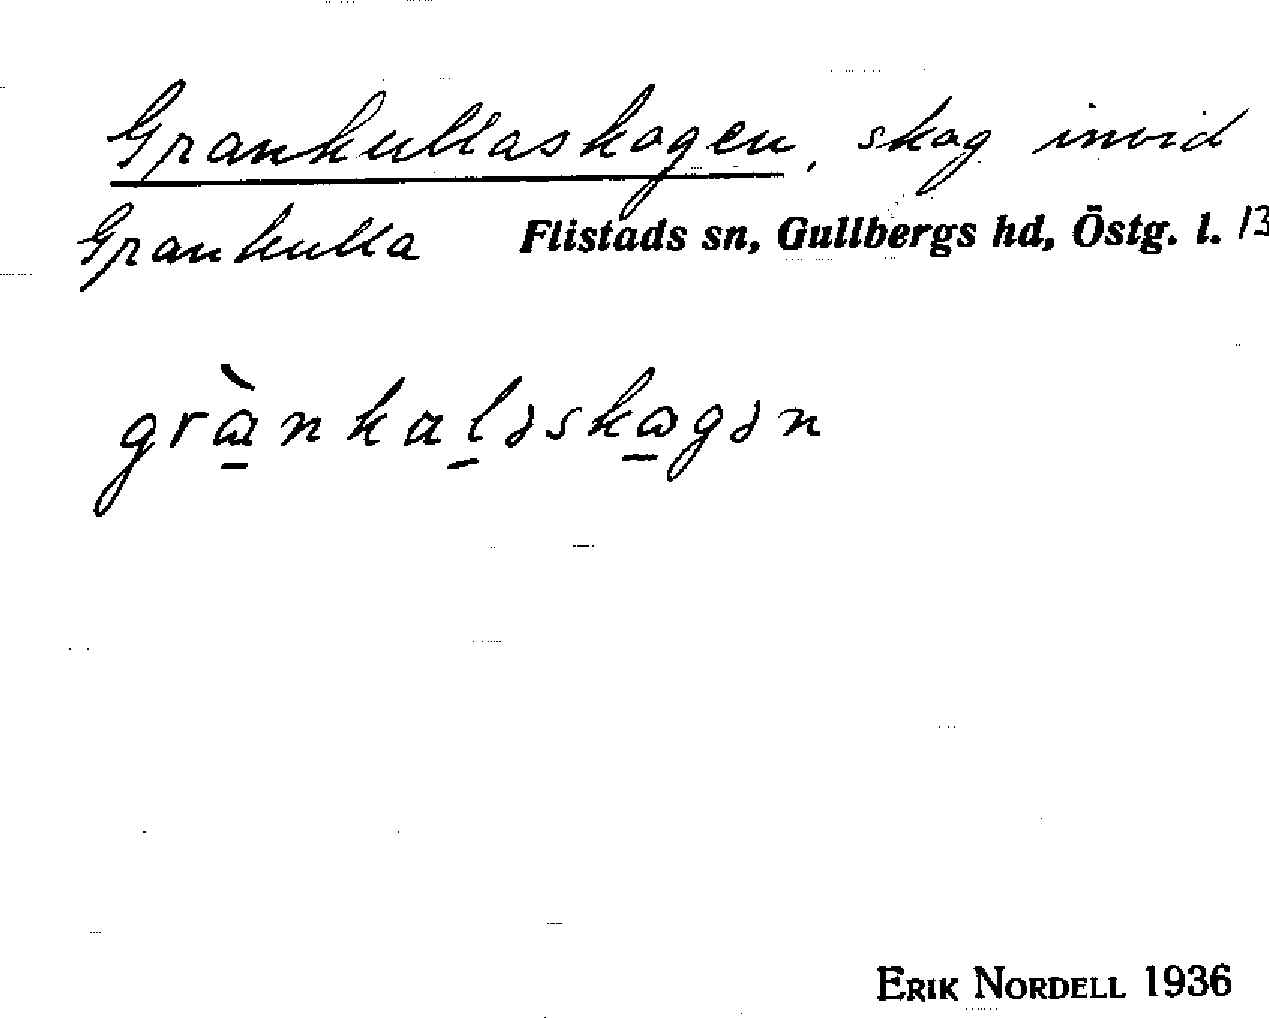 Grankullaskogen, skog invid
Grankulla Flistads sn, Gullbergs hd, Östg. l. 13
grànkaləskωgən
ERIK NORDELL 1936